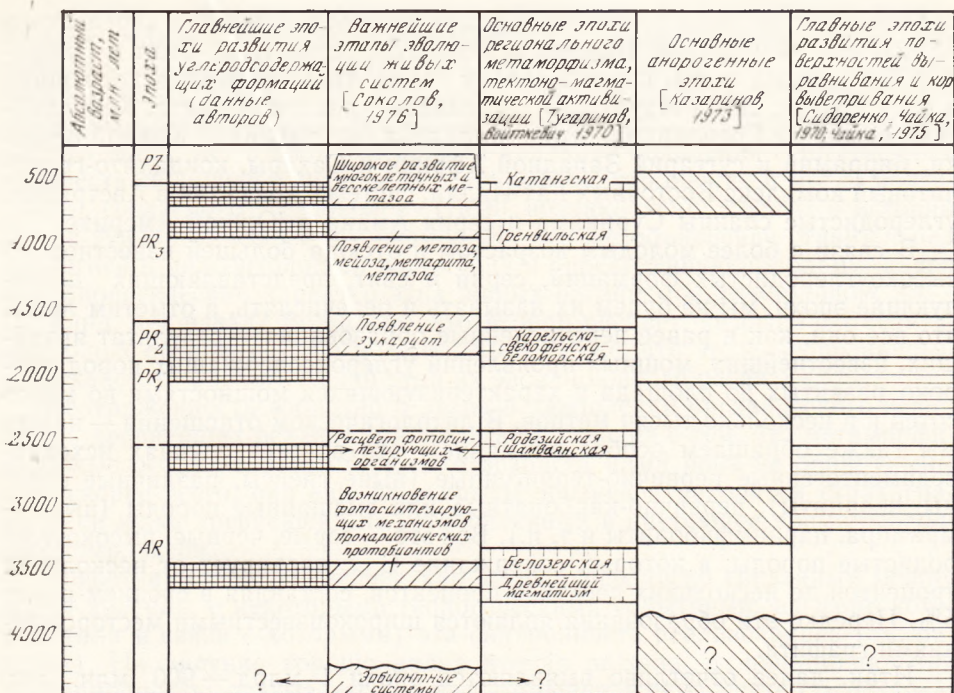 Абсолютный
возраст,
млн. лет
Эпоха
Главнейшие эпо-
хи развития
углеродсодержа-
щих формаций
(данные
авторов)
Важнейшие
этапы эволю-
ции живых
систем
[Соколов,
1976]
Основные эпохи
регионального
метаморфизма,
тектоно-магма-
тической активи-
зации [Тугаринов,
Войткевич 1970]
Основные
анорогенные
эпохи
[Казаринов,
1973]
Главные эпохи
развития по-
верхностей вы-
равнивания и кор
выветривания
[Сидоренко, Чайка,
1970; Чайка, 1975]
500
1000
1500
2000
2500
3000
3500
4000
PZ
PR3
PR2
PR1
AR
Широкое развитие
многоклеточных и
бесскелетных ме-
тазоа
Появление метоза,
мейоза, метафита,
метазоа
Появление
эукариот
Расцвет фотосин-
тезирующих
организмов
Возникновение
фотосинтезирую-
щих механизмов
прокариотических
протобионтов
? Эобионтные
системы ?
Катангская
Гренвильская
Карельско-
свекофенско-
беломорская
Родезийская
(Шамваянская
Белозерская
Древнейший
магматизм
?
?